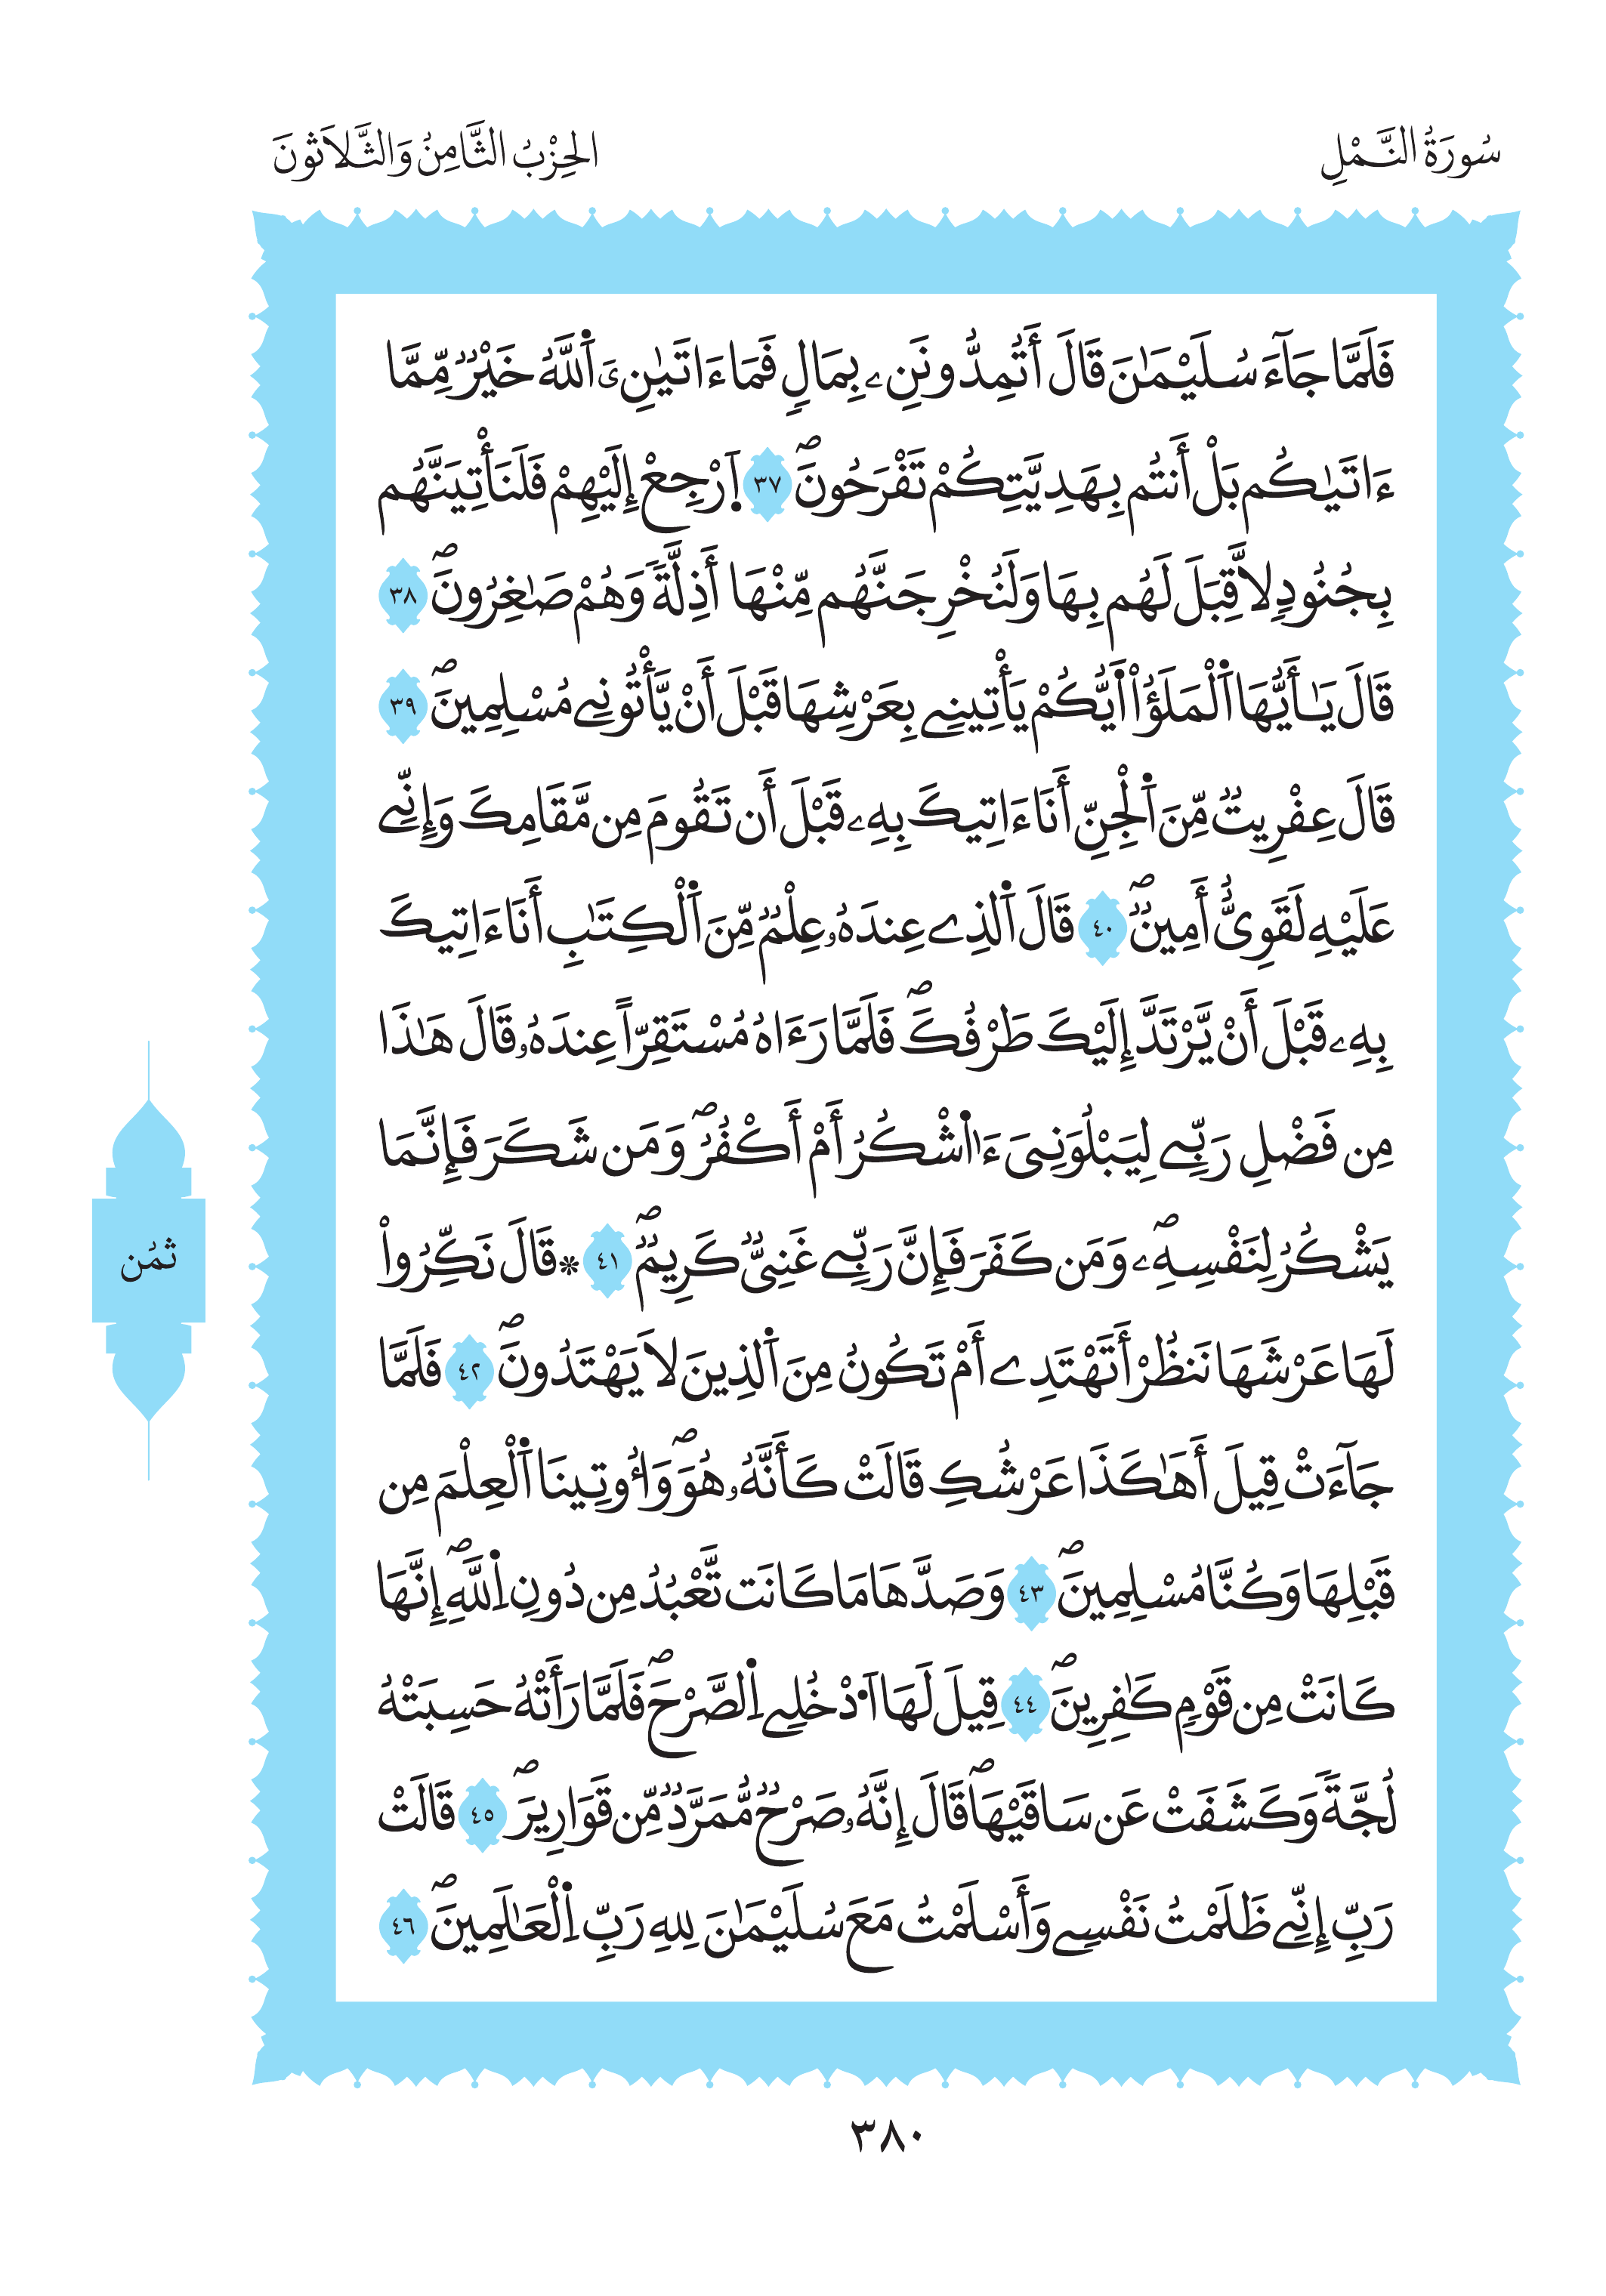 سُورَةُ النَّمْلِ
الحِزْبُ الثَّامِنُ وَالثَّلاَثونَ
فَلَمَّا جَآءَ سُلَيْمَٰنَ قَالَ أَتُمِدُّونَنِۦ بِمَالٖ فَمَآ ءَاتَيٰنِۦَ اَ۬للَّهُ خَيْرٞ مِّمَّآ
ءَاتَيٰكُم بَلْ أَنتُم بِهَدِيَّتِكُمْ تَفْرَحُونَۖ ٣٧ اَ۪رْجِعْ إِلَيْهِمْ فَلَنَأْتِيَنَّهُم
بِجُنُودٖ لاَّ قِبَلَ لَهُم بِهَا وَلَنُخْرِجَنَّهُم مِّنْهَآ أَذِلَّةٗ وَهُمْ صَٰغِرُونَۖ ٣٨
قَالَ يَٰٓأَيُّهَا اَ۬لْمَلَؤُاْ اَيُّكُمْ يَأْتِينِے بِعَرْشِهَا قَبْلَ أَنْ يَّأْتُونِے مُسْلِمِينَۖ ٣٩
قَالَ عِفْرِيتٞ مِّنَ اَ۬لْجِنِّ أَنَآ ءَاتِيكَ بِهِۦ قَبْلَ أَن تَقُومَ مِن مَّقَامِكَ وَإِنِّے
عَلَيْهِ لَقَوِيٌّ أَمِينٞۖ ٤٠ قَالَ اَ۬لذِے عِندَهُۥ عِلْمٞ مِّنَ اَ۬لْكِتَٰبِ أَنَآ ءَاتِيكَ
بِهِۦ قَبْلَ أَنْ يَّرْتَدَّ إِلَيْكَ طَرْفُكَۖ فَلَمَّا رَءَاهُ مُسْتَقِرّاً عِندَهُۥ قَالَ هَٰذَا
مِن فَضْلِ رَبِّے لِيَبْلُوَنِيَ ءَا۬شْكُرُ أَمْ أَكْفُرُۖ وَمَن شَكَرَ فَإِنَّمَا
يَشْكُرُ لِنَفْسِهِۦۖ وَمَن كَفَرَ فَإِنَّ رَبِّے غَنِيّٞ كَرِيمٞۖ ٤١ * قَالَ نَكِّرُواْ
لَهَا عَرْشَهَا نَنظُرْ أَتَهْتَدِے أَمْ تَكُونُ مِنَ اَ۬لذِينَ لاَ يَهْتَدُونَۖ ٤٢ فَلَمَّا
جَآءَتْ قِيلَ أَهَٰكَذَا عَرْشُكِ قَالَتْ كَأَنَّهُۥ هُوَۖ وَأُوتِينَا اَ۬لْعِلْمَ مِن
قَبْلِهَا وَكُنَّا مُسْلِمِينَۖ ٤٣ وَصَدَّهَا مَا كَانَت تَّعْبُدُ مِن دُونِ اِ۬للَّهِۖ إِنَّهَا
كَانَتْ مِن قَوْمٖ كَٰفِرِينَۖ ٤٤ قِيلَ لَهَا اَ۟دْخُلِے اِ۬لصَّرْحَۖ فَلَمَّا رَأَتْهُ حَسِبَتْهُ
لُجَّةٗ وَكَشَفَتْ عَن سَاقَيْهَاۖ قَالَ إِنَّهُۥ صَرْحٞ مُّمَرَّدٞ مِّن قَوَارِيرَۖ ٤٥ قَالَتْ
رَبِّ إِنِّے ظَلَمْتُ نَفْسِے وَأَسْلَمْتُ مَعَ سُلَيْمَٰنَ لِلهِ رَبِّ اِ۬لْعَٰلَمِينَۖ ٤٦
ثمُن
٣٨٠